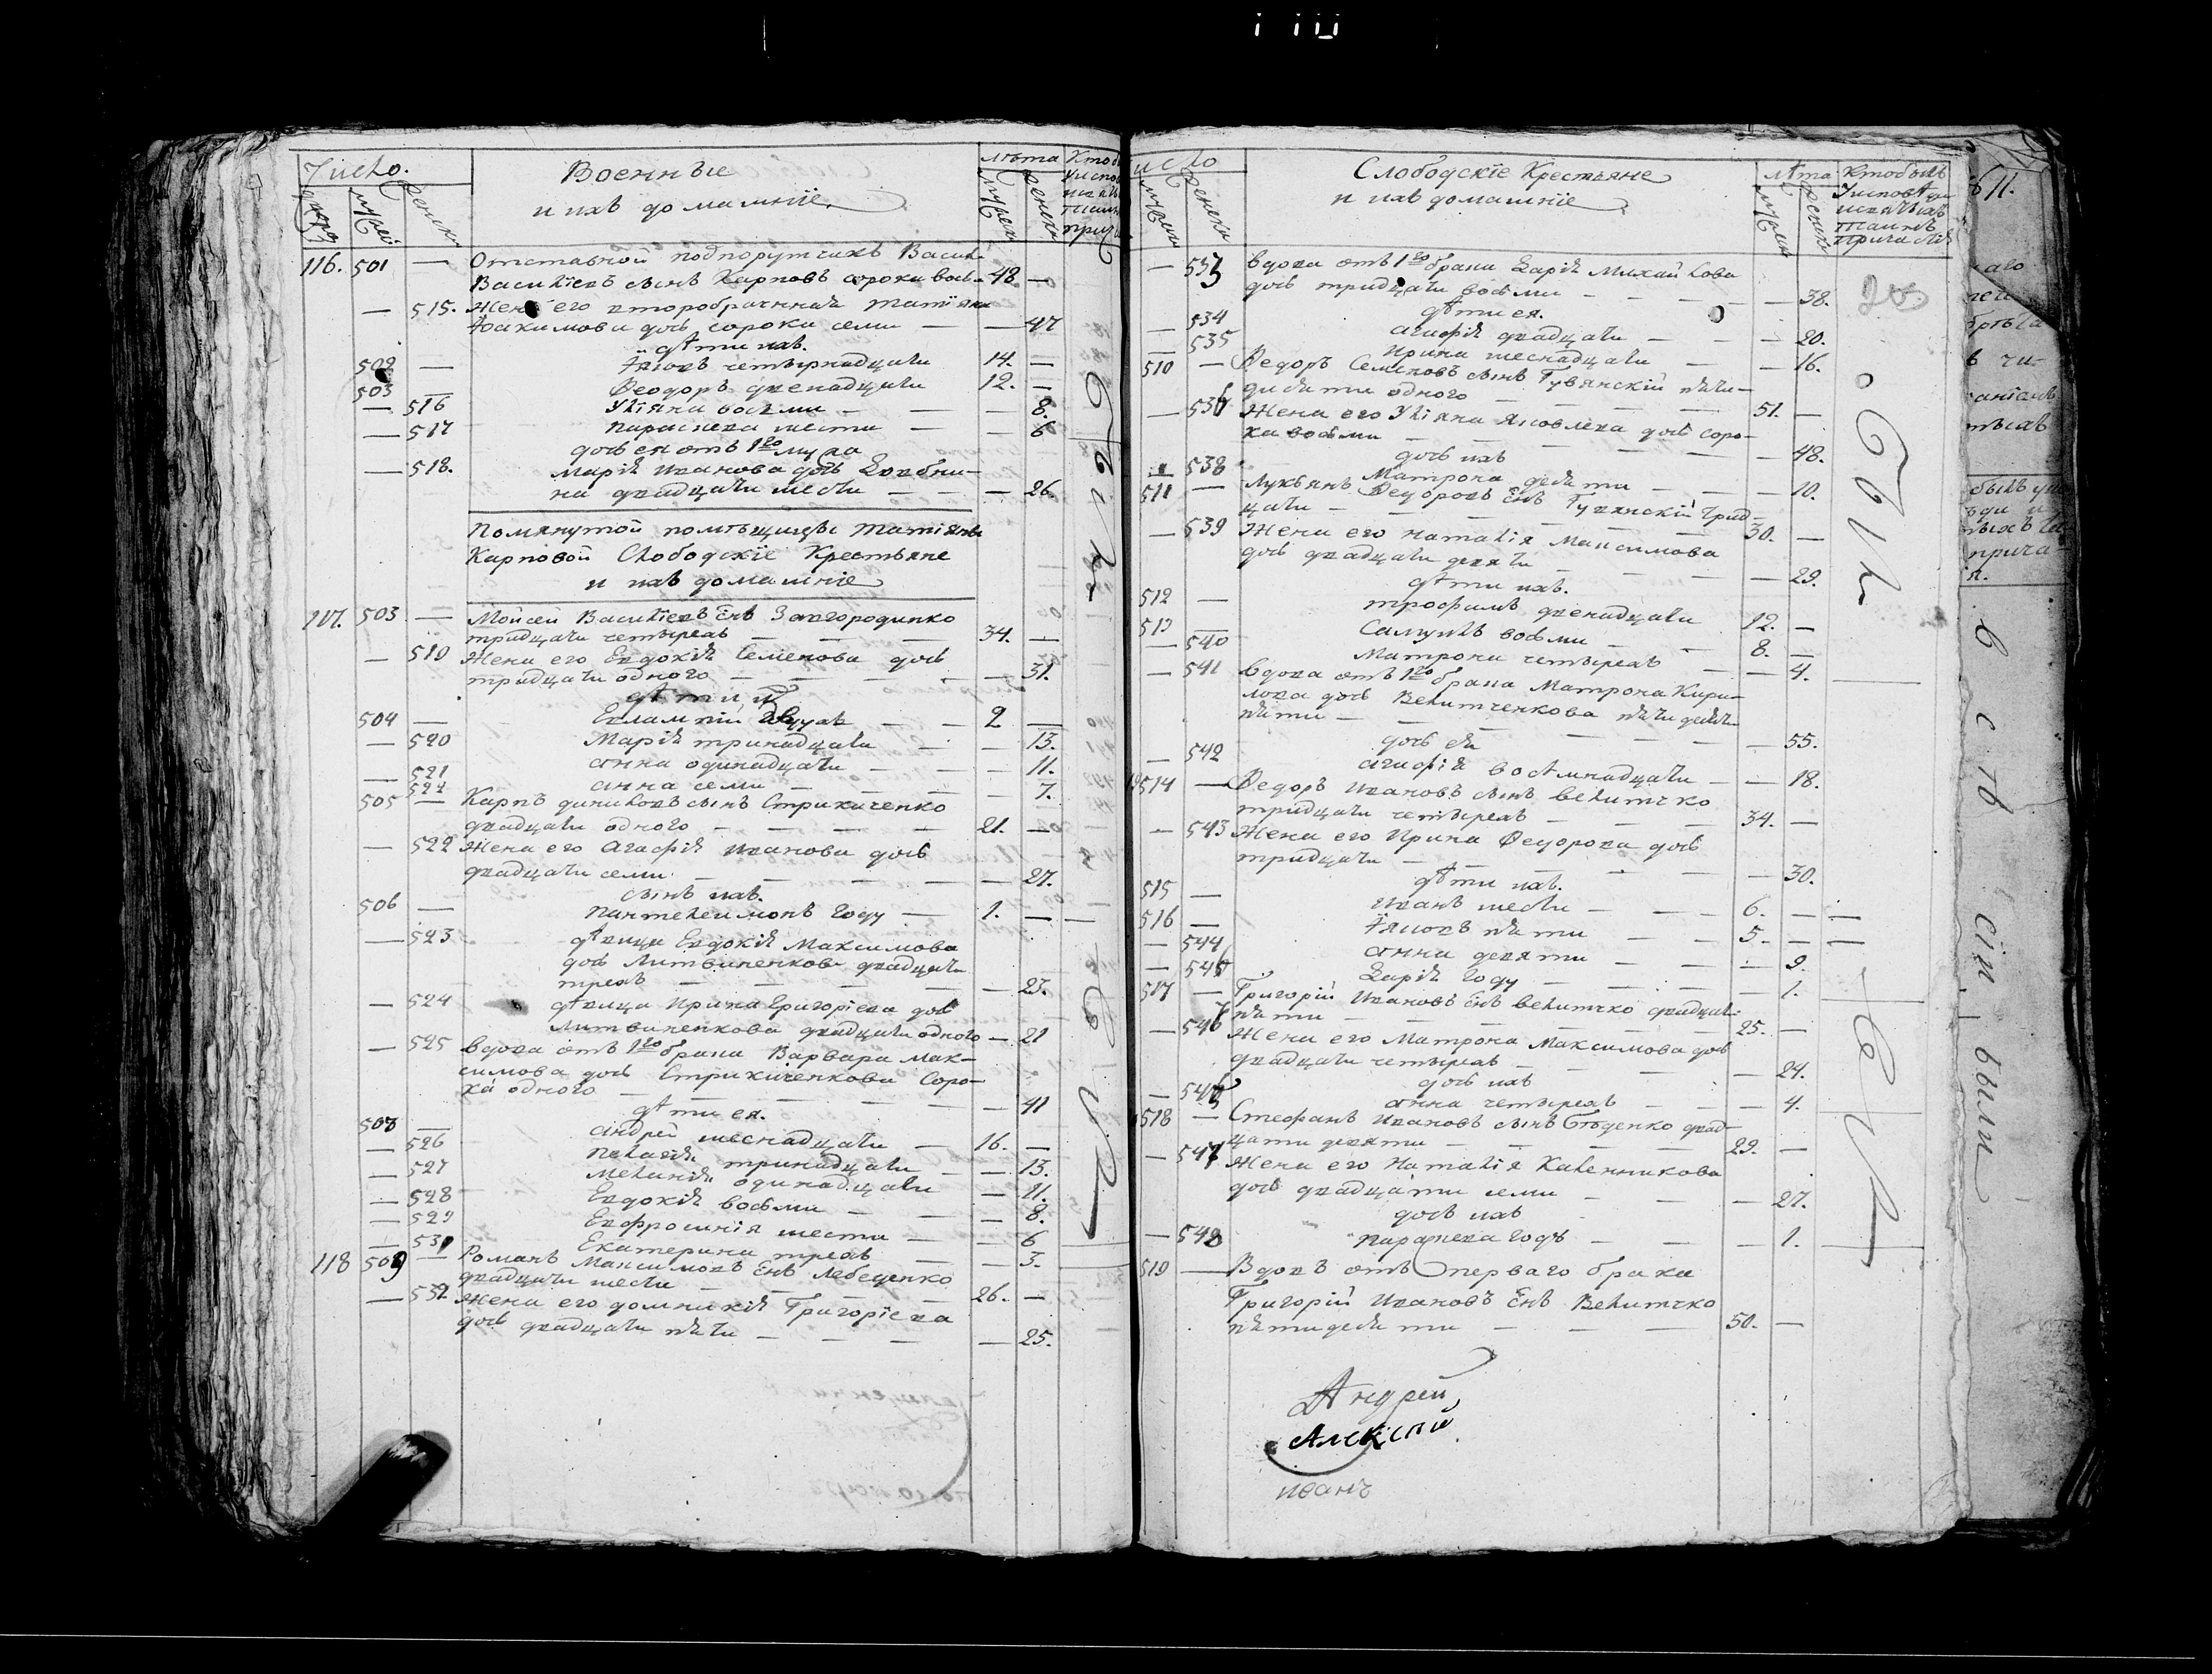 Число.
Военные
и ихъ домашніе
Лѣта
дворо
мужей
женска
мужеск
женска
116. 501 — Отставной подпорутчикъ Васил
Василіевъ сынъ Карповъ сорока вось 48 —
— 515. Жена его второбрачная Татіяна
Іоакимова дочь сорока семи — — 47
дѣти ихъ.
502 — Іяковъ четырнадцати 14. —
503 — Ѳеодоръ двенадцати 12. —
— 516 Уліяна восми — — 8.
— 517 Параскева шести — — 6
дочь ея отъ 1го мужа
— 518. Марія Иванова дочь
на двадцати шести — — — 26.
Помянутой помѣщицы Татіяны
Карповой Слободскіе Крестьяне
и ихъ домашніе
117. 503 — Мойсей Василіевъ снъ Завгородинко
тридцати четырехъ — — 34. —
— 519 Жена его Евдокія Семенова дочь
тридцати одного — — — — 31.
дѣти ихъ
504 — Евлампій двухъ — — 2 —
— 520 Марія тринадцати — — 13.
— 521 Анна одинадцати — — — 11.
— 522 Анна семи — — — 7.
505 — Карпъ Даниловъ сынъ Стрижиченко
двадцати одного — — — — 21. —
— 522 Жена его Агафія Иванова дочь
двадцати семи — — — — 27.
сынъ ихъ.
506 — Пантелеимонъ году — 1. —
— 523 дѣвица Евдокія Максимова
дочь Литвиненкова двадцати
трехъ — — — — — 23.
— 524 дѣвица Ирина Григоріева дочь
Литвиненкова двадцати одного — 21
— 525 Вдова отъ 1го брака Варвара Мак-
симова дочь Стрижиченкова соро-
ка одного — — — — — 41
дѣти ея.
508 — Андрей шеснадцати — 16. —
— 526 Пелагія тринадцати — — 13.
— 527 Меланія одинадцати — 11.
— 528 Евдокія восьми — — — 8.
— 529 Евфросинія шести — — 6
— 531 Екатерина трехъ — — 3.
118 509 — Романъ Максимовъ снъ Лебеденко
двадцати шести — — — 26. —
— 532 Жена его Домникія Григоріева
дочь двадцати пяти — — — — 25.
Число
Слободскіе Крестьяне
и ихъ домашніе
Лѣта
Ктобылъ
Уисповѣди
исвятыхъ
Таинъ
Причастія
мужей
женска
мужеск
женска
— 533 Вдова отъ 1го брака Дарія Михайлова
дочь тридцати восьми — — — — 38.
дѣти ея.
— 534 Агафія двадцати — — — 20.
— 535 Ирина шеснадцати — — 16.
510 — Ѳедоръ Семеновъ сынъ Гувянскій пяти-
десяти одного — — — — 51. —
— 536 Жена его Уліяна Яковлева дочь соро-
ка восьми — — — — — 48.
дочь ихъ
— 538 Матрона десяти — — — 10.
511 — Лукьянъ Ѳедоровъ снъ Гувянскій трид-
цати — — — — — 30. —
— 539 Жена его Наталія Максимова
дочь двадцати девяти — — — — 29.
дѣти ихъ.
512 — Трофимъ двенадцати 12. —
513 — Самуилъ восьми — — 8. —
— 540 Матрона четырехъ — — 4.
— 541 Вдова отъ 1го брака Матрона Кири-
лова дочь Велитченкова пятидеся
пяти — — — — — — 55.
дочь ея
— 542 Агафія восѣмнадцати — — 18.
514 — Ѳедоръ Ивановъ сынъ Велитчко
тридцати четырехъ — — — 34. —
— 543 Жена его Ирина Ѳедорова дочь
тридцати — — — — — 30.
дѣти ихъ.
515 — Иванъ шести — — — 6. —
516 — Іяковъ пяти — — 5. —
— 544 Анна девяти — — — 9.
— 545 Дарія году — — — — 1.
517 — Григорій Ивановъ снъ Велитчко двадцат-
пяти — — — — — 25. —
— 546 Жена его Матрона Максимова дочь
двадцати четырехъ — — — — 24.
дочь ихъ
— 546 Анна четырехъ — — — 4.
518 — Стефанъ Ивановъ сынъ Бѣденко двад-
цати девяти — — — — 29. —
— 547 Жена его Наталія Каленникова
дочь двадцати семи — — — — 27.
дочь ихъ
— 548 Параскева годъ — — — 1.
519 — Вдовъ отъ перваго брака
Григорій Ивановъ снъ Велитчко
пятидесяти — — — 50. —
Андрей
Алексій
иванъ
сіи были